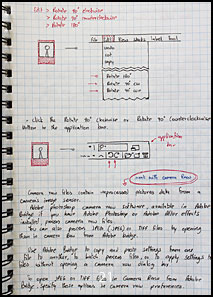 Edit > Rotate 90° clockwise
> Rotate 90° counterclockwise
> Rotate 180°
File Edit View Label Tools
undo
cut
copy
Rotate 180°
Rotate 90° cw
Rotate 90° ccw
- click the Rotate 90° clockwise or Rotate 90° counterclockwise
button in the application bar.
application
bar
work with camera Raw
Camera raw files contain unprocessed picture data from a
cameras image sensor.
Adobe photoshop camera raw software, available in Adobe
Bridge if you have Adobe Photoshop or Adobe After effects
installed process camera raw files.
You can also process JPEG (JPEG) or TIFF files by opening
them in camera Raw from Adobe Bridge.
Use Adobe Bridge to copy and paste settings from one
file to another, to batch process files, or to apply settings to
files without opening the camera raw dialog box.
To open JPEG or TIFF files in Camera Raw from Adobe
Bridge, Specify these options in camera raw preferences.